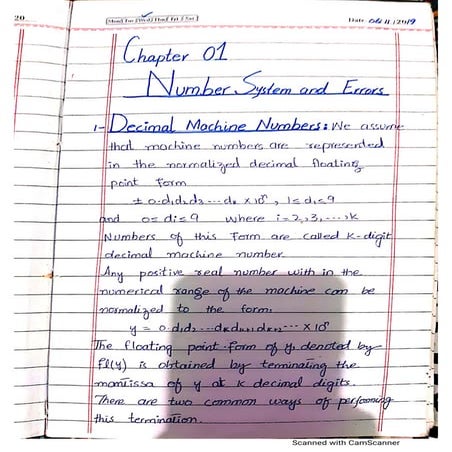 20
Mon Tue Wed Thu Fri Sat
Date 11/2019
Chapter 01
Number System and Errors
1- Decimal Machine Numbers: We assume
that machine numbers are represented
in the normalized decimal floating
point form
± 0.d₁d₂d₃...dₖ × 10ⁿ, 1≤d₁≤9
and 0≤di≤9 where i=2,3,...,K
Numbers of this form are called K-digit
decimal machine number.
Any positive real number with in the
numerical range of the machine can be
normalized to the form.
y = 0.d₁d₂...dₖdₖ₊₁dₖ₊₂... × 10ⁿ
The floating point form of y, denoted by
fl(y) is obtained by terminating the
mantissa of y at K decimal digits.
There are two common ways of performing
this termination.
Scanned with CamScanner